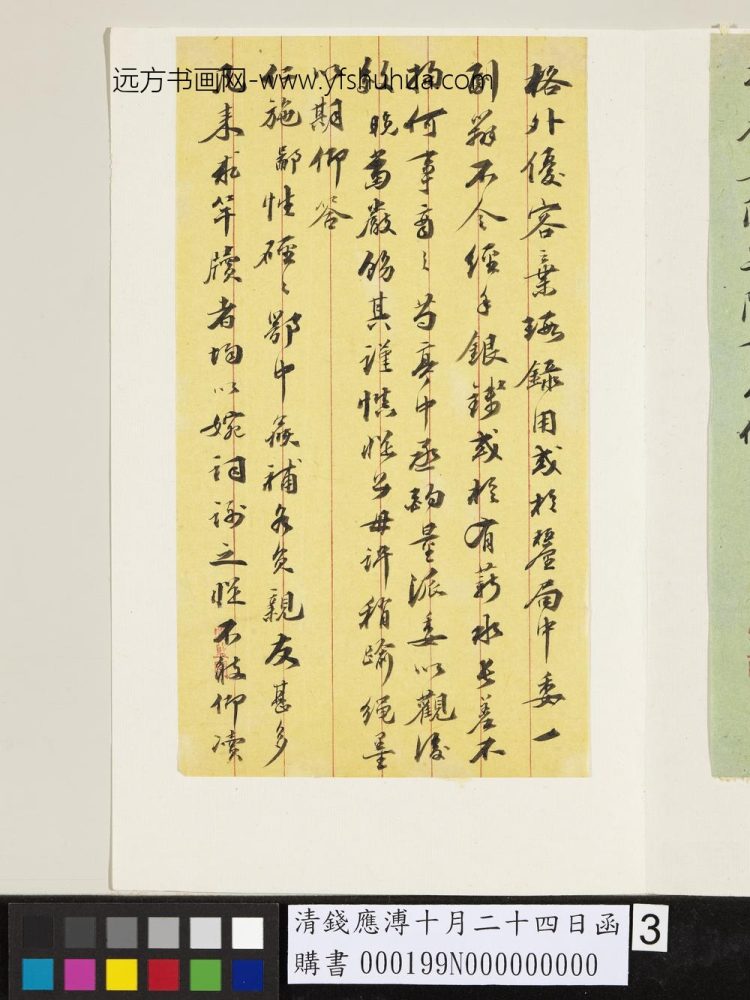 远方书画网-www.yfshuhua.com
格外優容棄瑕錄用或於釐局中委一
別辦不令經手銀錢或於有薪水長差不
拘何事商之芍亭中丞酌量派委以觀後
效晚當嚴飭其謹慎從公毋許稍踰繩墨
以期仰答
仁施鄙性硜之鄂中候補各員親友甚多
凡來求竿牘者均以婉詞謝之從不敢仰瀆
清錢應溥十月二十四日函
購書 000199N000000000
3